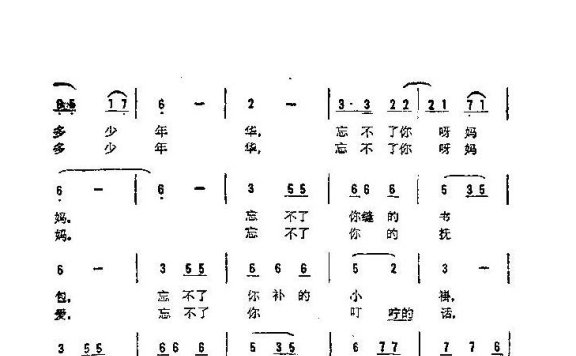 6 5 1 7 | 6 – | 2 – | 3· 3 2 2 | 2 1 7 1 |
多 少 年 华, 忘 不 了 你 呀 妈
多 少 年 华, 忘 不 了 你 呀 妈
6 – | 6 – | 3 5 5 | 6 6 6 | 5 3 5 |
妈。 忘 不了 你缝 的 书
妈。 忘 不了 你 的 抚
6 – | 3 5 5 | 6 6 6 | 5 2 | 3 – |
包, 忘 不了 你 补 的 小 褂,
爱, 忘 不了 你 叮 咛的 话,
3 5 5 | 6 6 6 | 5 3 5 | 6 7 7 | 7 7 6 |